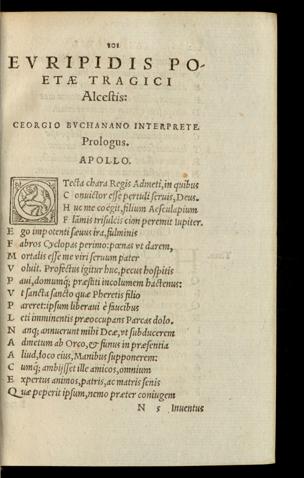 201
EVRIPIDIS PO-
ETÆ TRAGICI
Alcestis:
GEORGIO BVCHANANO INTERPRETE.
Prologus.
APOLLO.
O Tecta chara Regis Admeti, in quibus
C onuictor esse pertuli seruis, Deus.
H uc me coëgit, filium Aesculapium
F lāmis trisulcis cùm peremit Iupiter.
E go impotenti sæuus ira, fulminis
F abros Cyclopas perimo: pœnas vt darem,
M ortalis esse me viri seruum pater
V oluit. Profectus igitur huc, pecus hospitis
P aui, domumq́; præstiti incolumem hactenus:
V t sancta sancto quæ Pheretis filio
P areret: ipsum liberaui è faucibus
L eti imminentis præoccupans Parcas dolo.
N anq; annuerunt mihi Deæ, vt subducerem
A dmetum ab Orco, & funus in præsentia
A liud, loco eius, Manibus supponerem:
C umq́; ambijsset ille amicos, omnium
E xpertus animos, patris, ac matris senis
Q uæ peperit ipsum, nemo præter coniugem
N 5 Inuentus